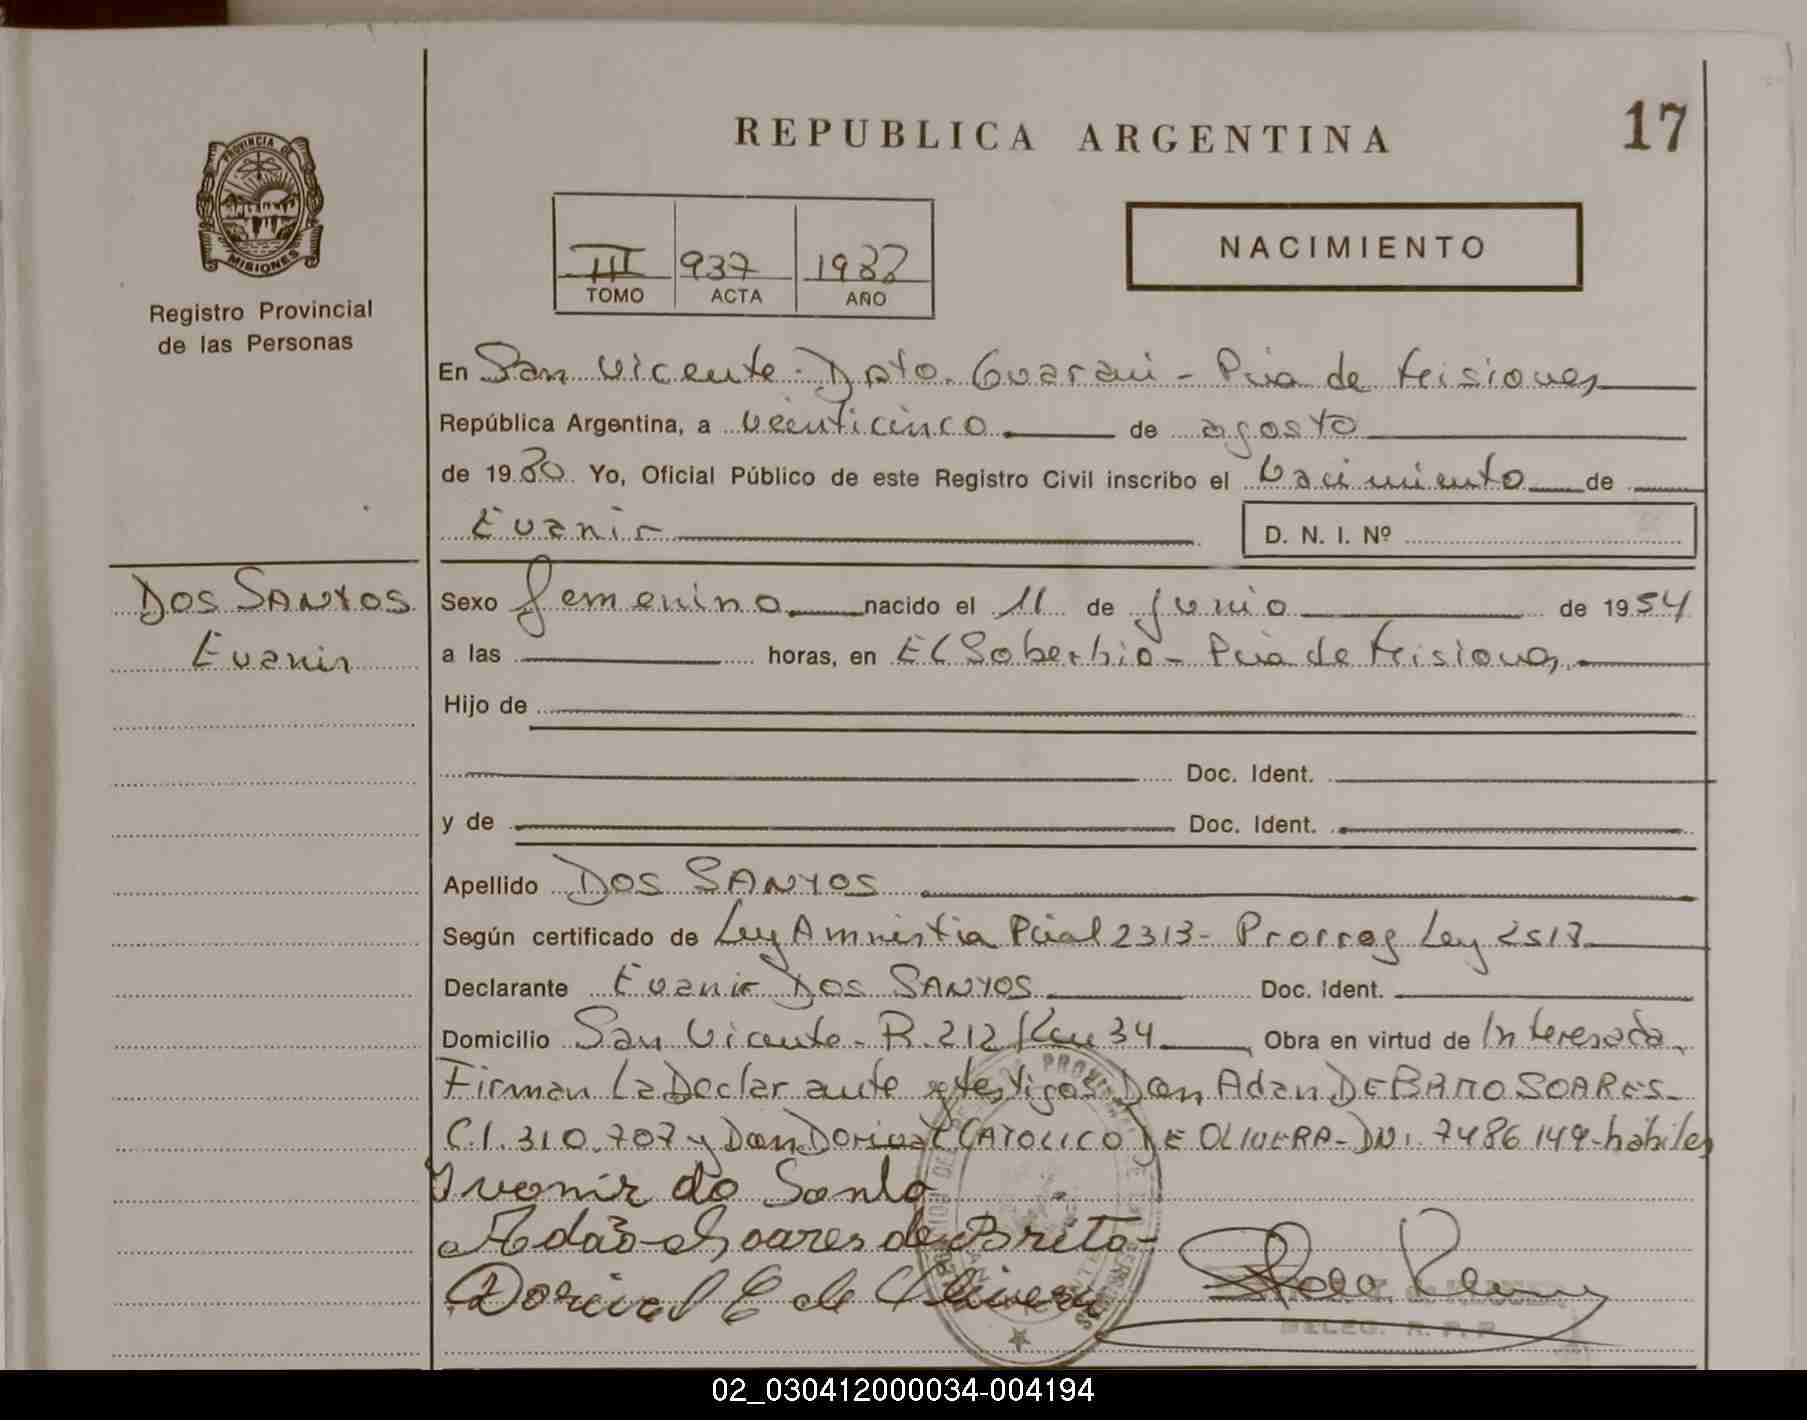 REPUBLICA ARGENTINA
17
PROVINCIA DE
MISIONES
Registro Provincial
de las Personas
III 937
TOMO ACTA AÑO
NACIMIENTO
En San Vicente - Dpto. Guarani - Pcia de Misiones
República Argentina, a veinticinco de agosto
de 1980. Yo, Oficial Público de este Registro Civil inscribo el Nacimiento de
Evanir
D. N. I. Nº
DOS SANTOS
Evanir
Sexo femenino nacido el 11 de junio de 1954
a las horas, en El Soberbio - Pcia de Misiones
Hijo de
Doc. Ident.
y de Doc. Ident.
Apellido DOS SANTOS
Según certificado de Ley Amnistia Pcial 2313 - Prorrog Ley
Declarante Evanir DOS SANTOS Doc. Ident.
Domicilio San Vicente - R. 212 Km 34 Obra en virtud de Interesada
Firman La Declarante y testigos Don Adan DE SOARES -
C.I. 310.707 y Don Dorival CATOLICO DE OLIVERA - DNI. 7486149 - habiles
Ivonir do Santo
Adão Soares de Brito -
Dorival C de Olivera
DELEG. R. P. P.
02_030412000034-004194